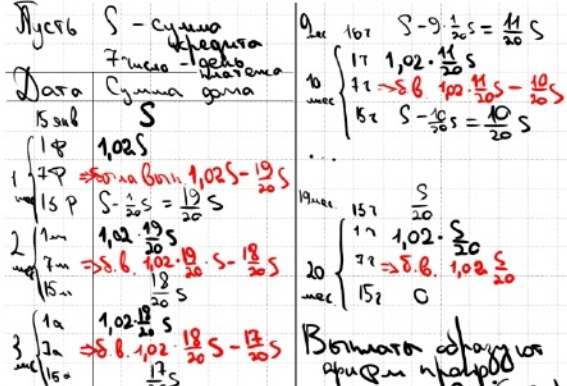 Пусть S - сумма
кредита
7 число - день
платежа
Дата Сумма долга
15 янв S
1 ф 1,02S
1 мес 7 ф ⇒ была вып. 1,02S - 19/20 S
15 ф S - 1/20 S = 19/20 S
1 м 1,02 · 19/20 S
2 мес 7 м ⇒ б.в. 1,02 · 19/20 · S - 18/20 S
15 м 18/20 S
1 а 1,02 · 18/20 S
3 мес 7 а ⇒ б.в. 1,02 · 18/20 S - 17/20 S
15 а 17/20 S
9 мес 15 г S - 9 · 1/20 S = 11/20 S
1 г 1,02 · 11/20 S
10 мес 7 г ⇒ б.в. 1,02 · 11/20 S - 10/20 S
15 г S - 10/20 S = 10/20 S
...
19 мес 15 г S/20
1 г 1,02 · S/20
20 мес 7 г ⇒ б.в. 1,02 S/20
15 г 0
Выплаты образуют
арифм прогр